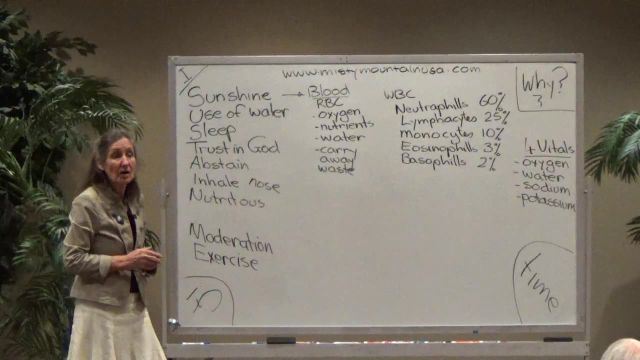 www.mistymountainusa.com
Sunshine → Blood
Use of water
Sleep
Trust in God
Abstain
Inhale nose
Nutritous
Moderation
Exercise
RBC
-oxygen
-nutrients
-water
-carry
away
waste
WBC
Neutraphills 60%
Lymphacytes 25%
monocytes 10%
Eosinophills 3%
Basophills 2%
Why?
?
4 Vitals
-oxygen
-water
-sodium
-potassium
time